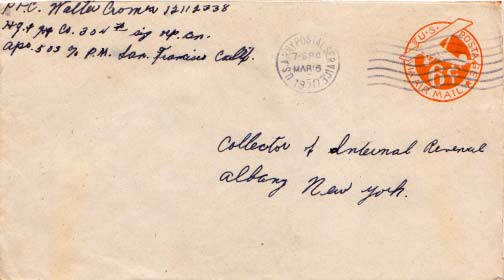 Pfc. Walter Cromer 12112338
Hq & Hq Co. 304th Sig Op. Bn.
Apo 503 % P.M. San. Francisco Calif.
U.S. ARMY POSTAL SERVICE
MAR 6
1950
U.S. POSTAGE
6¢
VIA AIR MAIL
Collector of Internal Revenue
Albany New York.